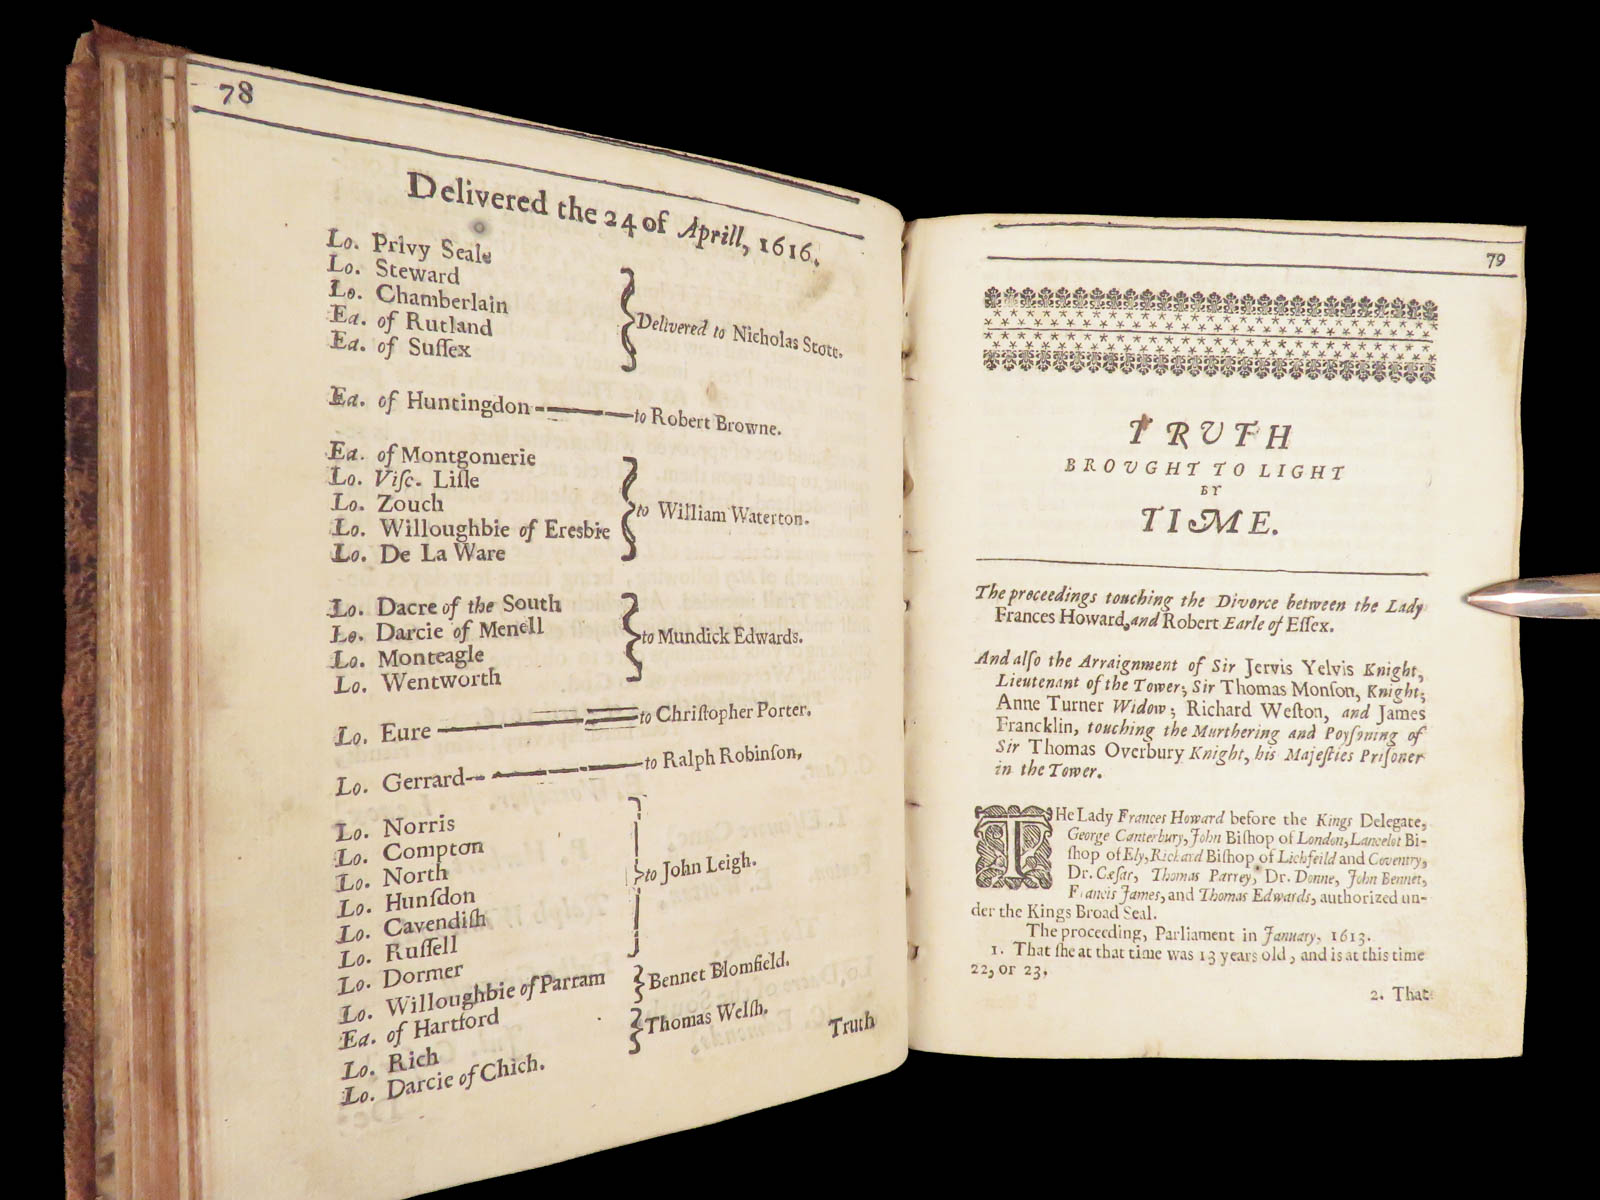 78
Delivered the 24 of Aprill, 1616.
Lo. Privy Seale
Lo. Steward
Lo. Chamberlain
Ea. of Rutland
Ea. of Suſſex
Delivered to Nicholas Stott.
Ea. of Huntingdon to Robert Browne.
Ea. of Montgomerie
Lo. Viſc. Liſle
Lo. Zouch
Lo. Willoughbie of Eresbie
Lo. De La Ware
to William Waterton.
Lo. Dacre of the South
Lo. Darcie of Menell
Lo. Monteagle
Lo. Wentworth
to Mundick Edwards.
Lo. Eure to Chriſtopher Porter.
Lo. Gerrard to Ralph Robinſon,
Lo. Norris
Lo. Compton
Lo. North
Lo. Hunſdon
Lo. Cavendiſh
Lo. Ruſſell
to John Leigh.
Lo. Dormer
Lo. Willoughbie of Parram
Bennet Blomfield.
Ea. of Hartford
Lo. Rich
Thomas Welſh.
Lo. Darcie of Chich.
Truth
79
TRUTH
BROUGHT TO LIGHT
BY
TIME.
The proceedings touching the Divorce between the Lady
Frances Howard, and Robert Earle of Eſſex.
And alſo the Arraignment of Sir Jervis Yelvis Knight,
Lieutenant of the Tower; Sir Thomas Monſon, Knight;
Anne Turner Widow; Richard Weſton, and James
Francklin, touching the Murthering and Poyſoning of
Sir Thomas Overbury Knight, his Majeſties Priſoner
in the Tower.
THe Lady Frances Howard before the Kings Delegate,
George Canterbury, John Biſhop of London, Lancelot Bi-
ſhop of Ely, Richard Biſhop of Lichfeild and Coventry,
Dr. Cæſar, Thomas Parrey, Dr. Donne, John Bennet,
Francis James, and Thomas Edwards, authorized un-
der the Kings Broad Seal.
The proceeding, Parliament in January, 1613.
1. That ſhe at that time was 13 years old, and is at this time
22, or 23,
2. That